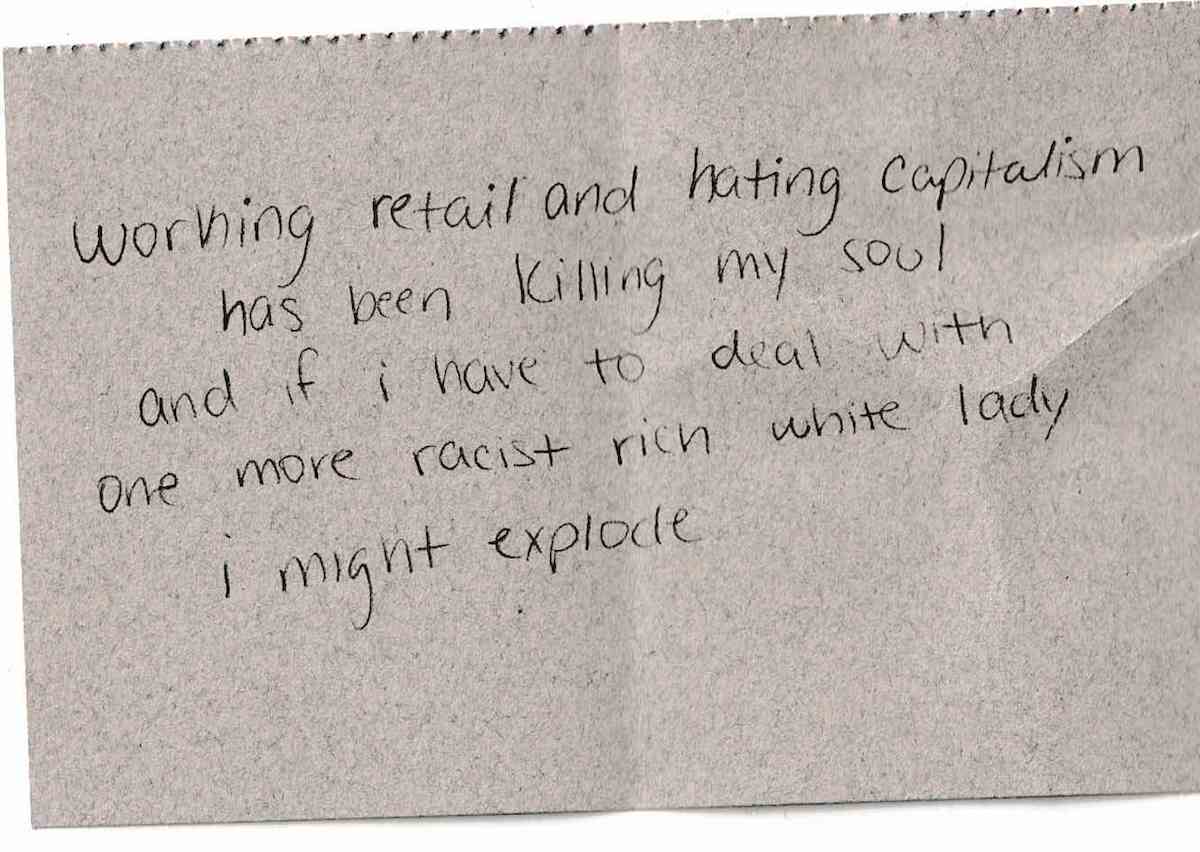 working retail and hating capitalism
has been killing my soul
and if i have to deal with
one more racist rich white lady
i might explode